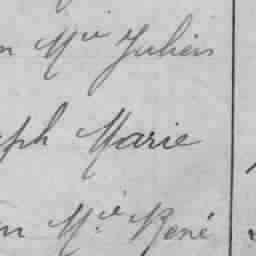 n Mie Julien
eph Marie
n Mie René